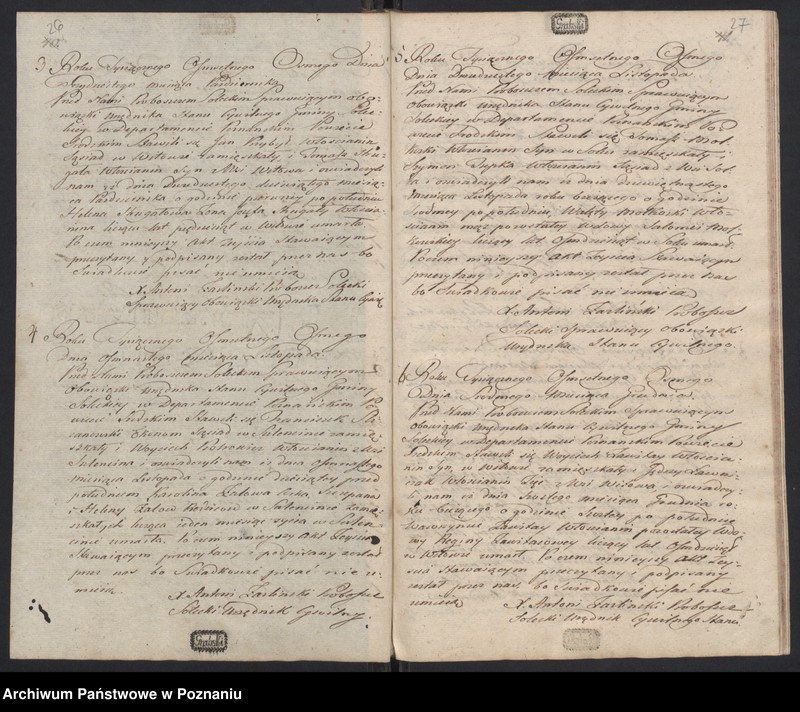 26
3 Roku Tysiącznego Osmsetnego Osmego Dnia
Trzydziestego miesiąca Października
Przed Nami Proboszczem Soleckim Sprawuiącym obo-
wiązki Urzędnika Stanu Cywilnego Gminy Sole-
ckiey w Departamencie Poznańskim Powiecie
Szredzkim Stawili się Jan
Sąsiad w Witowie zamieszkały i Tomasz
Włościanin Syn z Wsi Witowa i oświadczyli
nam iż dnia Dwudziestego dziewiątego miesią-
ca Października o godzinie pierwszey po południu
Helena Żona Józefa Włościa-
nina licząca lat pięćdziesiąt w Witowie umarła
Poczem ninieyszy Akt Zeyścia Stawaiącym
przeczytany y podpisany został przez nas bo
Świadkowie pisać nie umieią
X Antoni Zarliński Proboszcz Solecki
Sprawuiący Obowiązki Urzędnika Stanu Cywil
4 Roku Tysiącznego Osmsetnego Osmego
dnia Osmnastego miesiąca Listopada
Przed Nami Proboszczem Soleckim Sprawuiącym
Obowiązki Urzędnika Stanu Cywilnego Gminy
Soleckiey w Departamencie Poznańskim Po-
wiecie Szredzkim Stawili się Franciszek
Ekonom Sąsiad w Sulencinie zamie-
szkały i Woyciech Włościanin z Wsi
Sulencina i oświadczyli nam iż dnia Osmnastego
miesiąca Listopada o godzinie dziesiątey przed
południem Karolina Córka Szczepana
i Heleny w Sulencinie zamie-
szkałych licząca ieden miesiąc życia w Sulen-
cinie umarła. Poczem ninieyszy Akt Zeyścia
Stawaiącym przeczytany i podpisany został
przez nas bo Świadkowie pisać nie u-
mieią
X Antoni Zarliński Proboszcz
Solecki Urzędnik Cywilny.
27
5 Roku Tysiącznego Osmsetnego Osmego
Dnia Dwudziestego miesiąca Listopada
Przed Nami Proboszczem Soleckim Sprawuiącym
Obowiązki Urzędnika Stanu Cywilnego Gminy
Soleckiey w Departamencie Poznańskim Po-
wiecie Szredzkim Stawili się Tomasz
Włościanin Syn w Solcu zamieszkały i
Szymon Włościanin Sąsiad z Wsi Sol-
ca i oświadczyli nam iż dnia dziewiętnastego
miesiąca Listopada roku bieżącego o godzinie
siódmey po południu Walenty Włoś-
cianin mąż pozostałey wdowy Salomei
liczący lat w Solcu umarł.
Poczem ninieyszy Akt Zeyścia Stawaiącym
przeczytany i podpisany został przez nas
bo Świadkowie pisać nie umieią
X Antoni Zarliński Proboszcz
Solecki Sprawuiący Obowiązki
Urzędnika Stanu Cywilnego.
6 Roku Tysiącznego Osmsetnego Osmego
Dnia Siódmego Miesiąca Grudnia.
Przed Nami Proboszczem Soleckim Sprawuiącym
Obowiązki Urzędnika Stanu Cywilnego Gminy
Soleckiey w Departamencie Poznańskim Powiecie
Szredzkim Stawili się Woyciech Włościa-
nin Syn w Witowie zamieszkały i Jędrzey
Włościanin z Wsi Witowa i oświadczy-
li nam iż dnia Szóstego miesiąca Grudnia ro-
ku bieżącego o godzinie po południu
Wawrzyniec Włościanin pozostałey wdo-
wy Reginy liczący lat
w Witowie umarł. Poczem ninieyszy Akt Zey-
ścia Stawaiącym przeczytany i podpisany
został przez nas bo Świadkowie pisać nie
umieią
X Antoni Zarliński Proboszcz
Solecki Urzędnik Cywilnego Stanu
Archiwum Państwowe w Poznaniu